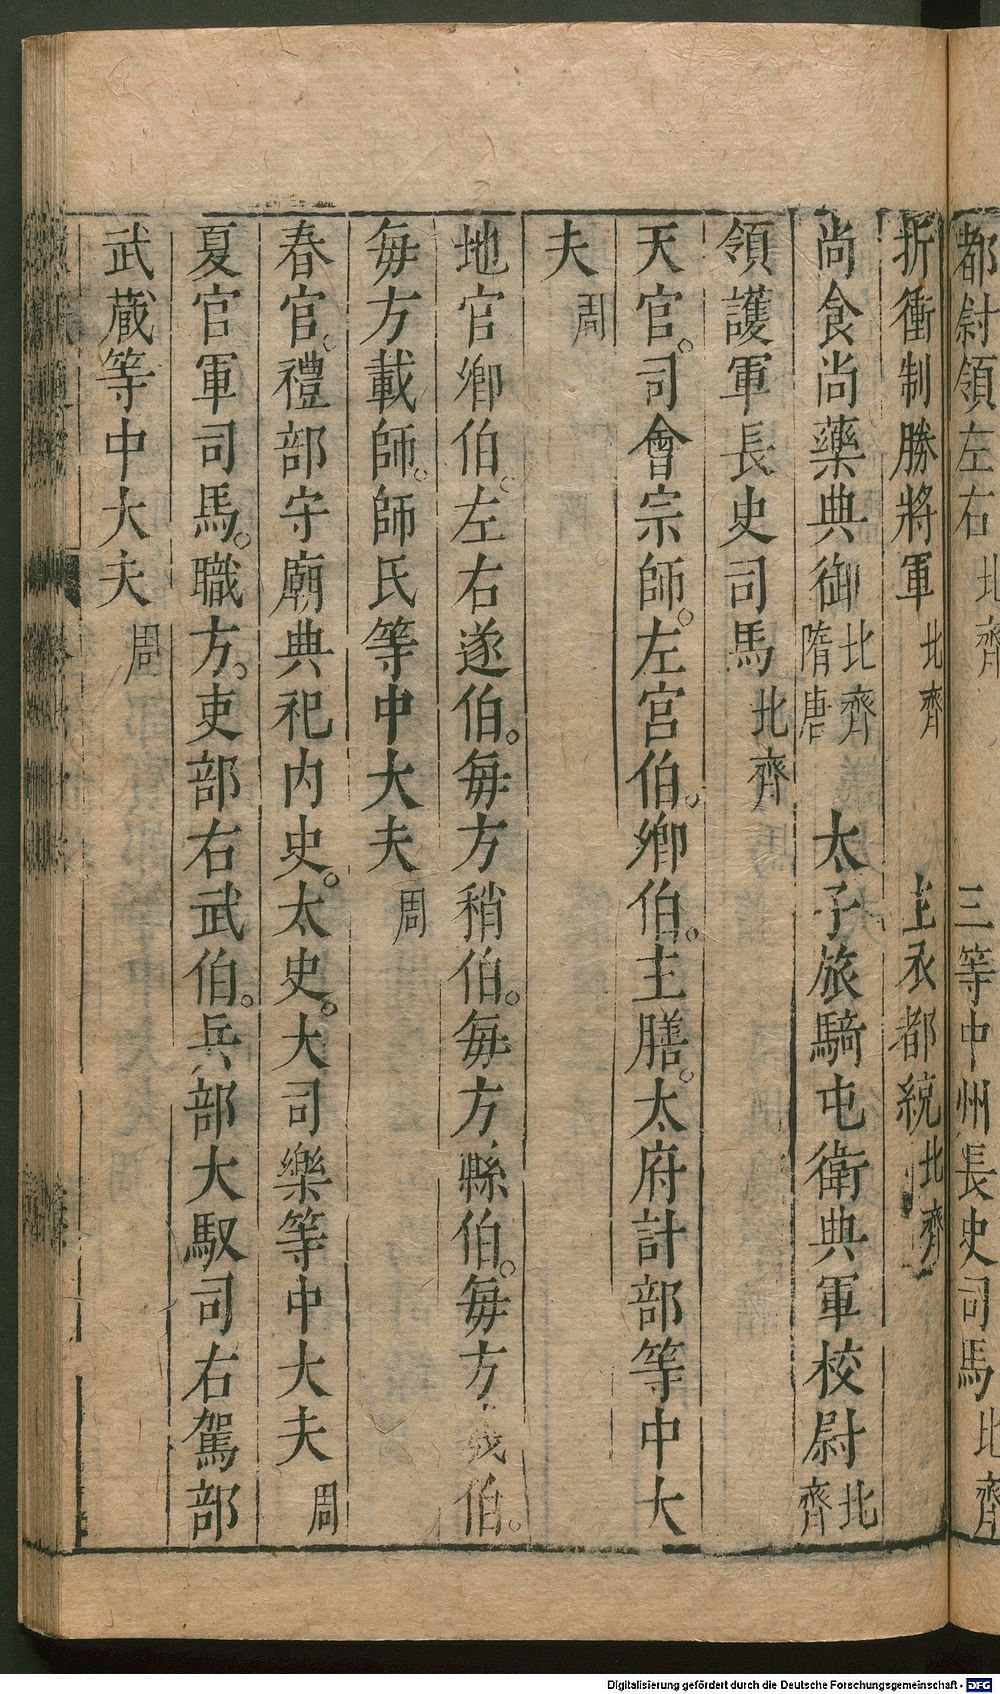 都尉領左右北齊　三等中州長史司馬北齊
折衝制勝將軍北齊　主衣都統北齊
尚食尚藥典御北齊隋唐　太子旅騎屯衛典軍校尉北齊
領護軍長史司馬北齊
天官。司會宗師。左宮伯。鄉伯。主膳。太府計部等中大
夫周
地官鄉伯。左右遂伯。每方稍伯。每方縣伯。每方伯。
每方載師。師氏等中大夫周
春官。禮部守廟典祀內史。太史。大司樂等中大夫周
夏官軍司馬。職方。吏部右武伯。兵部大馭司右駕部
武蔵等中大夫周
Digitalisierung gefördert durch die Deutsche Forschungsgemeinschaft - DFG